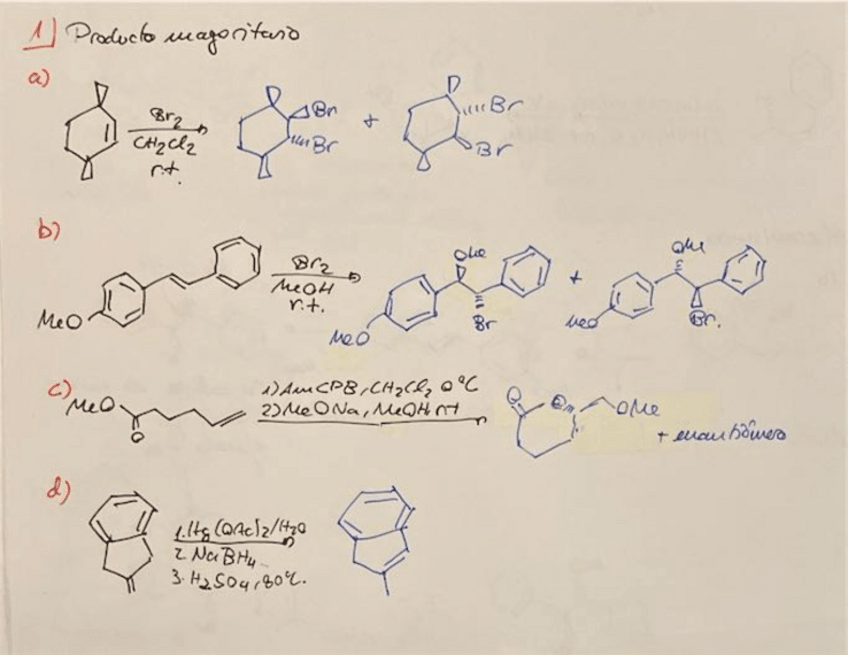 1] Producto mayoritario
a)
Br2
CH2Cl2
r.t.
Br
Br
+
Br
Br
b)
MeO
Br2
MeOH
r.t.
OMe
MeO
Br
+
OMe
MeO
Br.
c)
MeO
O
1) AmCPB, CH2Cl2 0ºC
2) MeONa, MeOH rt
O
O
OMe
+ enantiómero
d)
1. Hg(OAc)2/H2O
2. NaBH4
3. H2SO4, 80ºC.